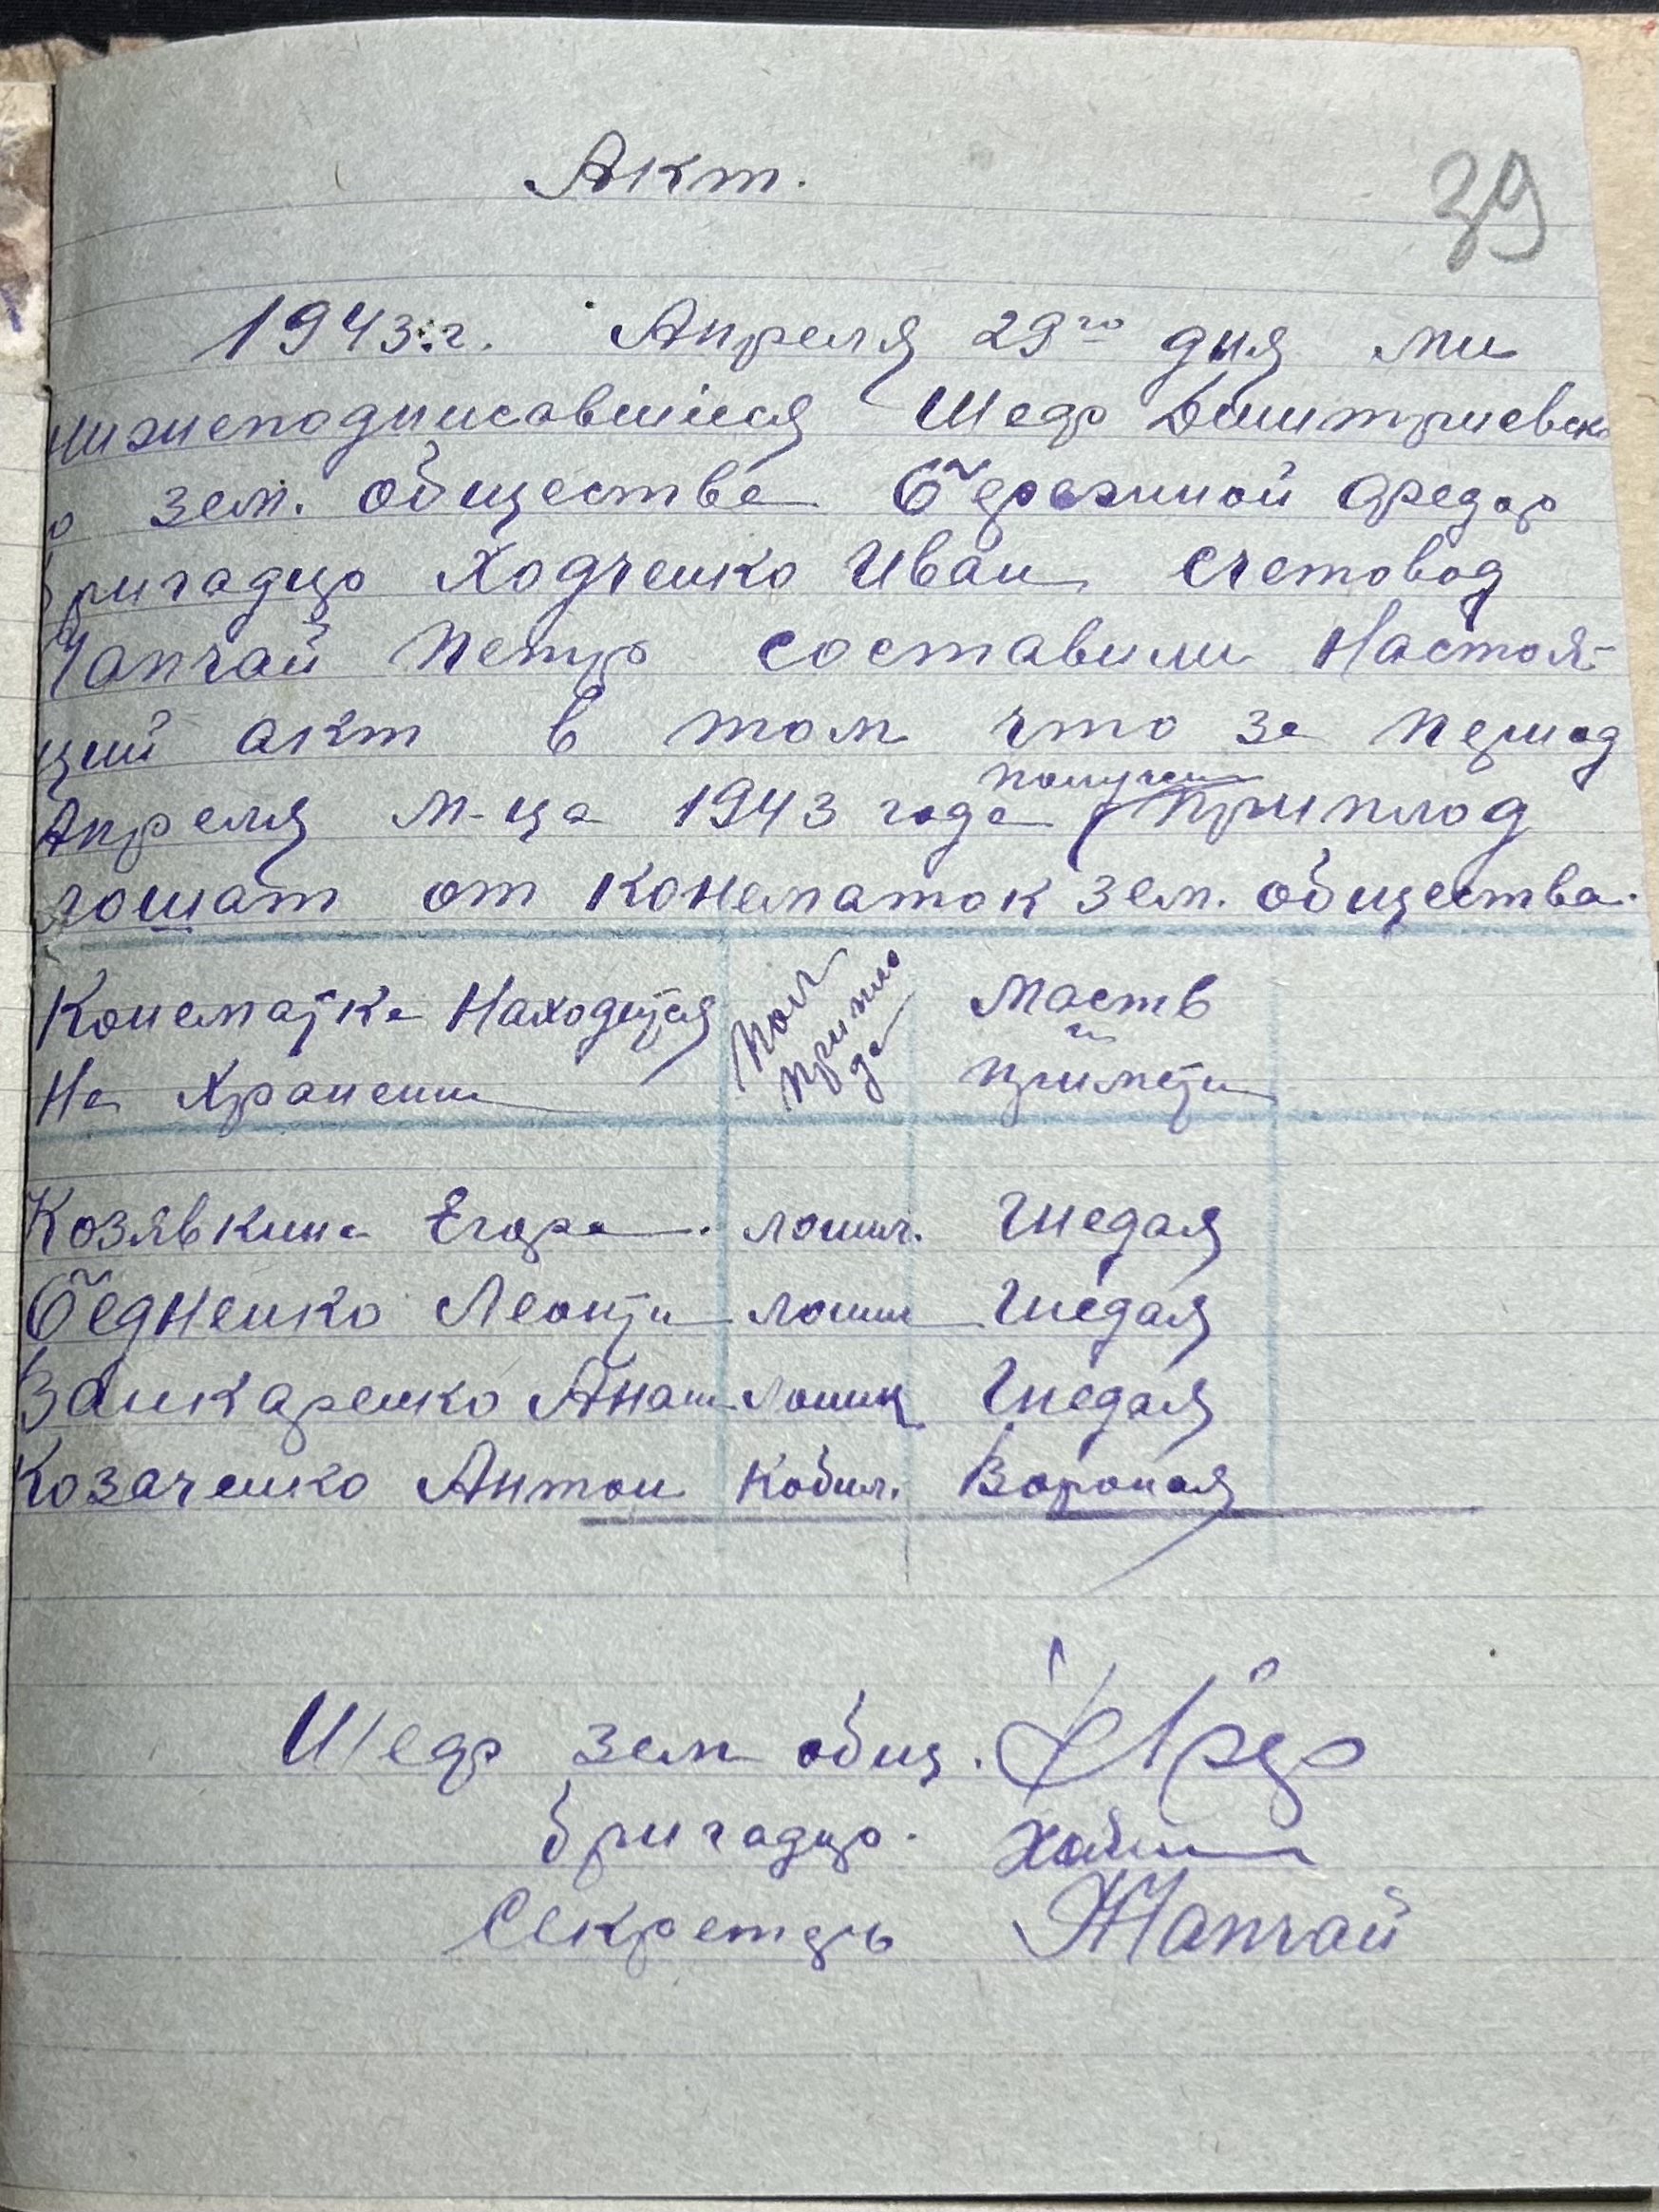 Акт.
39
1943 г. Апреля 29го дня ми
нижеподписавшиеся Шеф Дмитриевско
о зем. общества Бережной Федор
бригадир Ходченко Иван счетовод
Чапчай Петр составили Настоя-
щий акт в том что за период
получени
Апреля м-ца 1943 года приплод
лошат от конематок зем. общества.
Конематка находится
На Хранении
Пол
приплода
Масть
и
приметы
Козявкина Егора. лошич. Гнедая
Бедненко Леонти лошич Гнедая
Заикаренко Анат лошиц Гнедая
Козаченко Антон Кобил. Вороная
Шеф зем общ.
бригадир.
Секретарь Чапчай